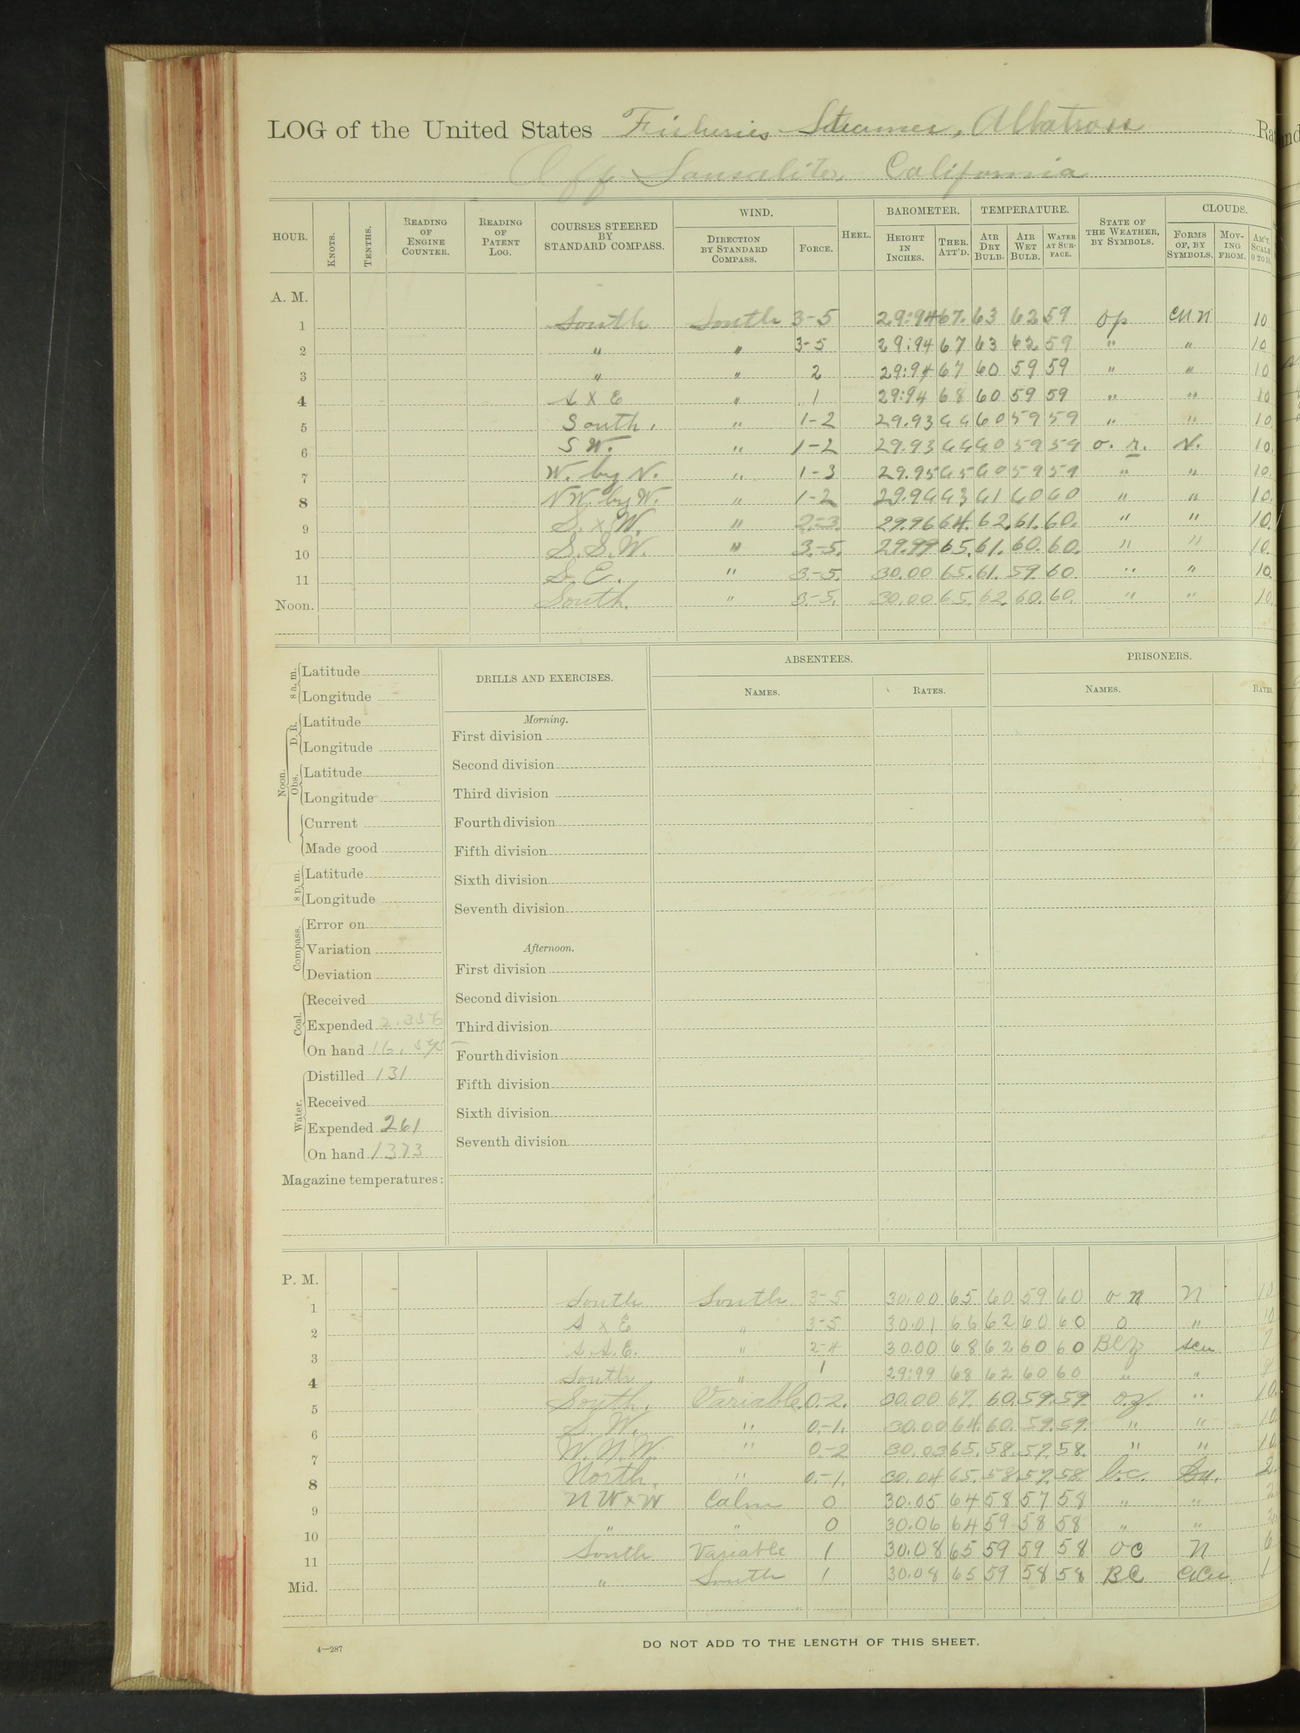 LOG of the United States Fisheries Steamer, Albatross Ra
Off Sausalito, California
HOUR. KNOTS. TENTHS. READING OF ENGINE COUNTER. READING OF PATENT LOG. COURSES STEERED BY STANDARD COMPASS. WIND. DIRECTION BY STANDARD COMPASS. FORCE. HEEL. BAROMETER. HEIGHT IN INCHES. THER. ATT'D. TEMPERATURE. AIR DRY BULB. AIR WET BULB. WATER AT SURFACE. STATE OF THE WEATHER, BY SYMBOLS. CLOUDS. FORMS OF, BY SYMBOLS. MOVING FROM. AM'T. SCALE 0 TO 10.
A. M.
1 South South 3-5 29:94 67. 63 62 59 op cu n 10
2 " " 3-5 29:94 67 63 62 59 " " 10
3 " " 2 29:94 67 60 59 59 " " 10
4 S x E " 1 29:94 68 60 59 59 " " 10
5 South. " 1-2 29.93 66 60 59 59 " " 10
6 S W. " 1-2 29.93 66 60 59 59 o. r. N. 10
7 W. by N. " 1-3 29.95 65 60 59 59 " " 10
8 NW. by W. " 1-2 29.96 63 61 60 60 " " 10
9 S. x W. " 2-3. 29.96 64. 62. 61. 60. " " 10
10 S. S. W. " 3-5. 29.99 65. 61. 60. 60. " " 10
11 S. E. " 3-5. 30.00 65. 61. 59. 60. " " 10
Noon. South. " 3-5. 30.00 65. 62. 60. 60. " " 10
8 a. m. Latitude
Longitude
Noon. D. R. Latitude
Longitude
Obs. Latitude
Longitude
Current
Made good
8 p. m. Latitude
Longitude
Compass. Error on
Variation
Deviation
Coal. Received
Expended 2.356
On hand
Water. Distilled 131
Received
Expended 261
On hand 1373
Magazine temperatures:
DRILLS AND EXERCISES.
Morning.
First division
Second division
Third division
Fourth division
Fifth division
Sixth division
Seventh division
Afternoon.
First division
Second division
Third division
Fourth division
Fifth division
Sixth division
Seventh division
ABSENTEES.
NAMES. RATES.
PRISONERS.
NAMES. RATES.
P. M.
1 South South 3-5 30.00 65 60 59 60 o n 10
2 S x E " 3-5 30.01 66 62 60 60 o " 10
3 S.S.E. " 2-4 30.00 68 62 60 60 Bcz scu 7
4 South " 1 29:99 68 62 60 60 " "
5 South. Variable. 0.-2. 30.00 67. 60. 59. 59. oz. " 10.
6 S. W. " 0.-1. 30.00 64. 60. 59. 59. " " 10.
7 W.N.W. " 0.-2 30.03 65. 58. 57. 58. " " 10.
8 North. " 0.-1. 30.04 65. 58. 57. 58. b.c. 2.
9 NW x W Calm 0 30.05 64 58 57 58 " " 2
10 " " 0 30.06 64 59 58 58 " "
11 South Variable 1 30.08 65 59 59 58 oc N 6
Mid. " South 1 30.08 65 59 58 58 BC 1
4—287
DO NOT ADD TO THE LENGTH OF THIS SHEET.